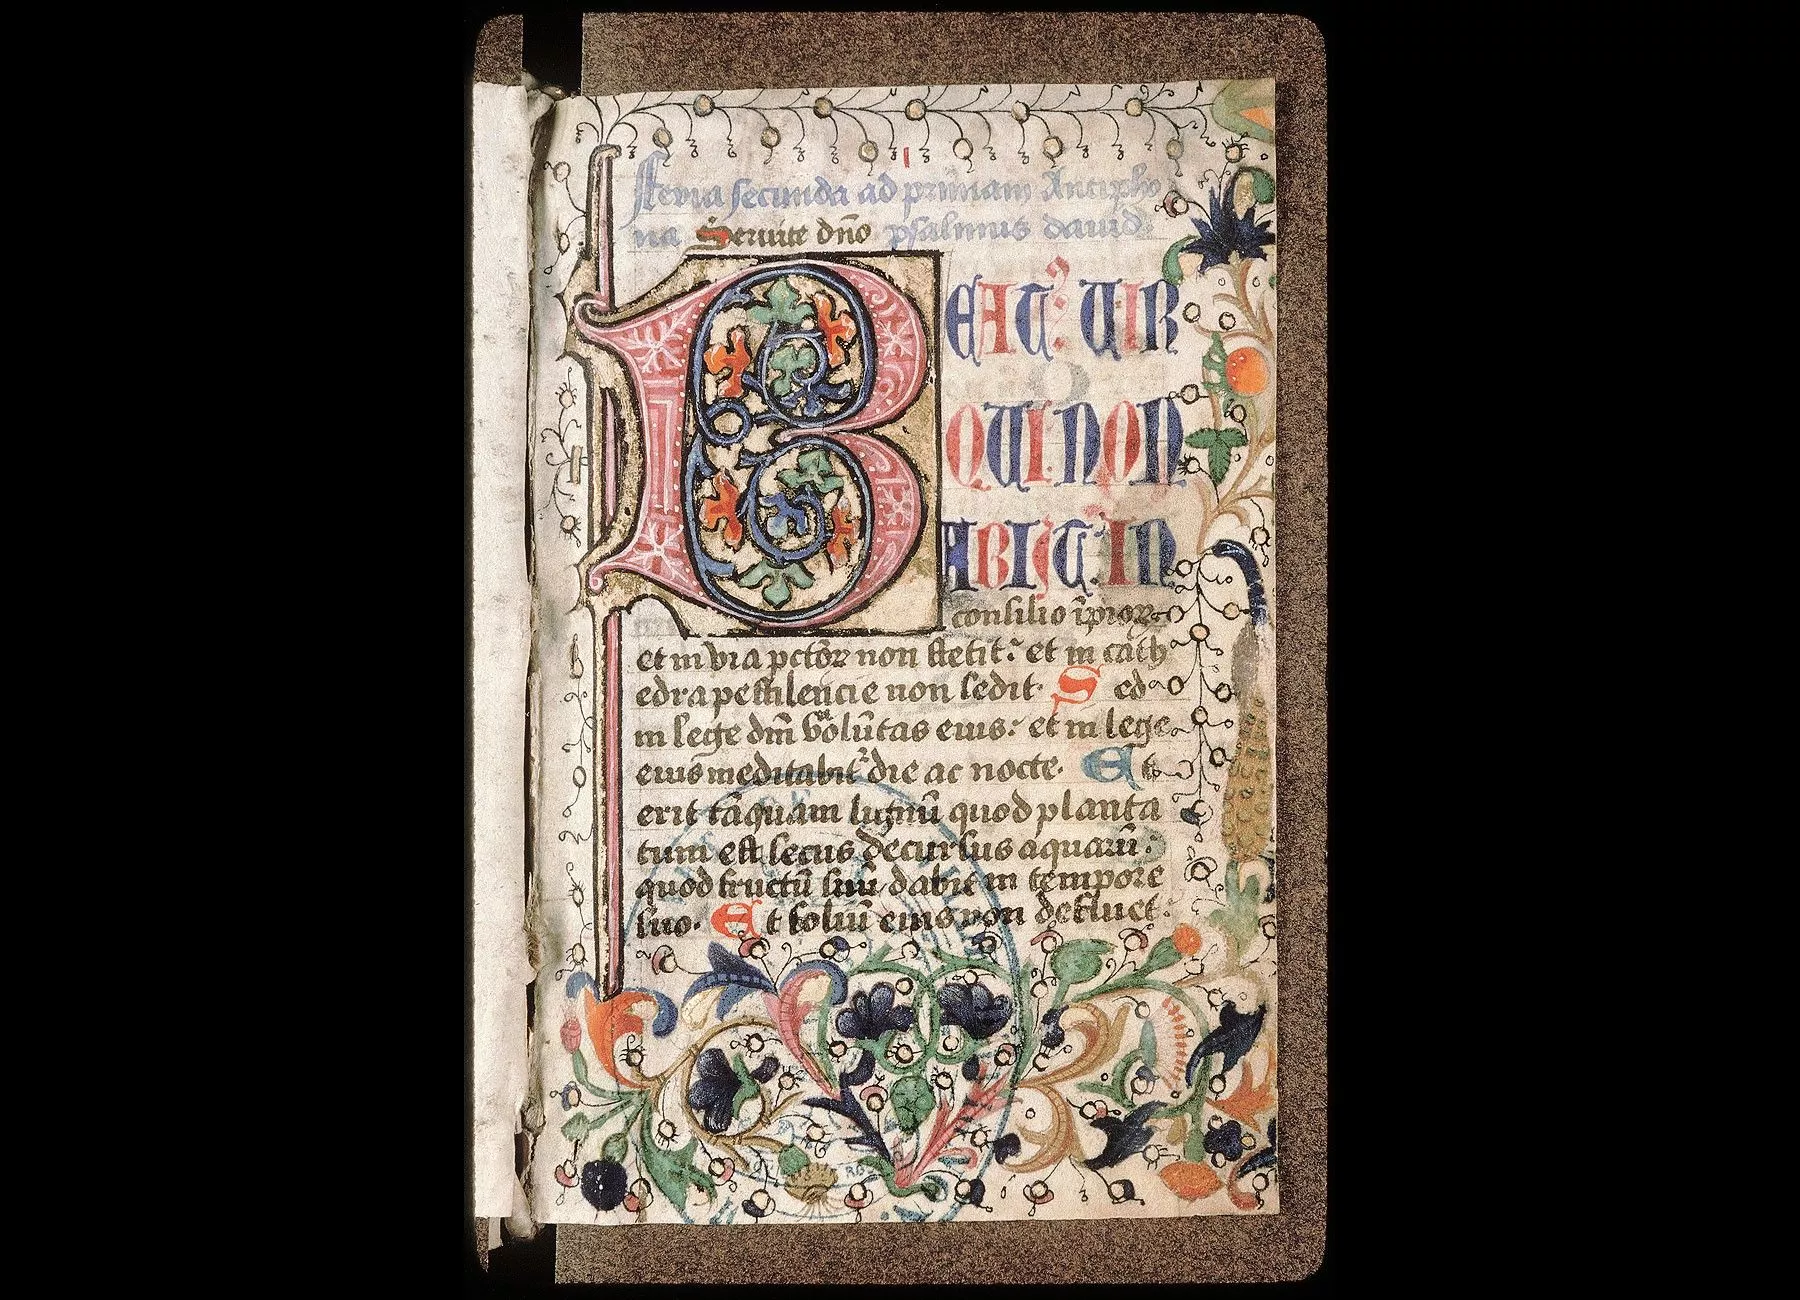 Feria secunda ad primam Antipho
na Seruite dn̄o psalmus dauid
BEATꝰ UIR
QUI NON
ABIJT IN
consilio īpioꝝ
et in via pctōꝝ non stetit: et in cath
edra pestilencie non sedit. Sed
in lege dn̄i volūtas eius: et in lege
eius meditabit᷑ die ac nocte. Et
erit tāquam lignū quod planta
tum est secus decursus aquarū:
quod fructū suū dabit in tempore
suo. Et foliū eius non defluet: